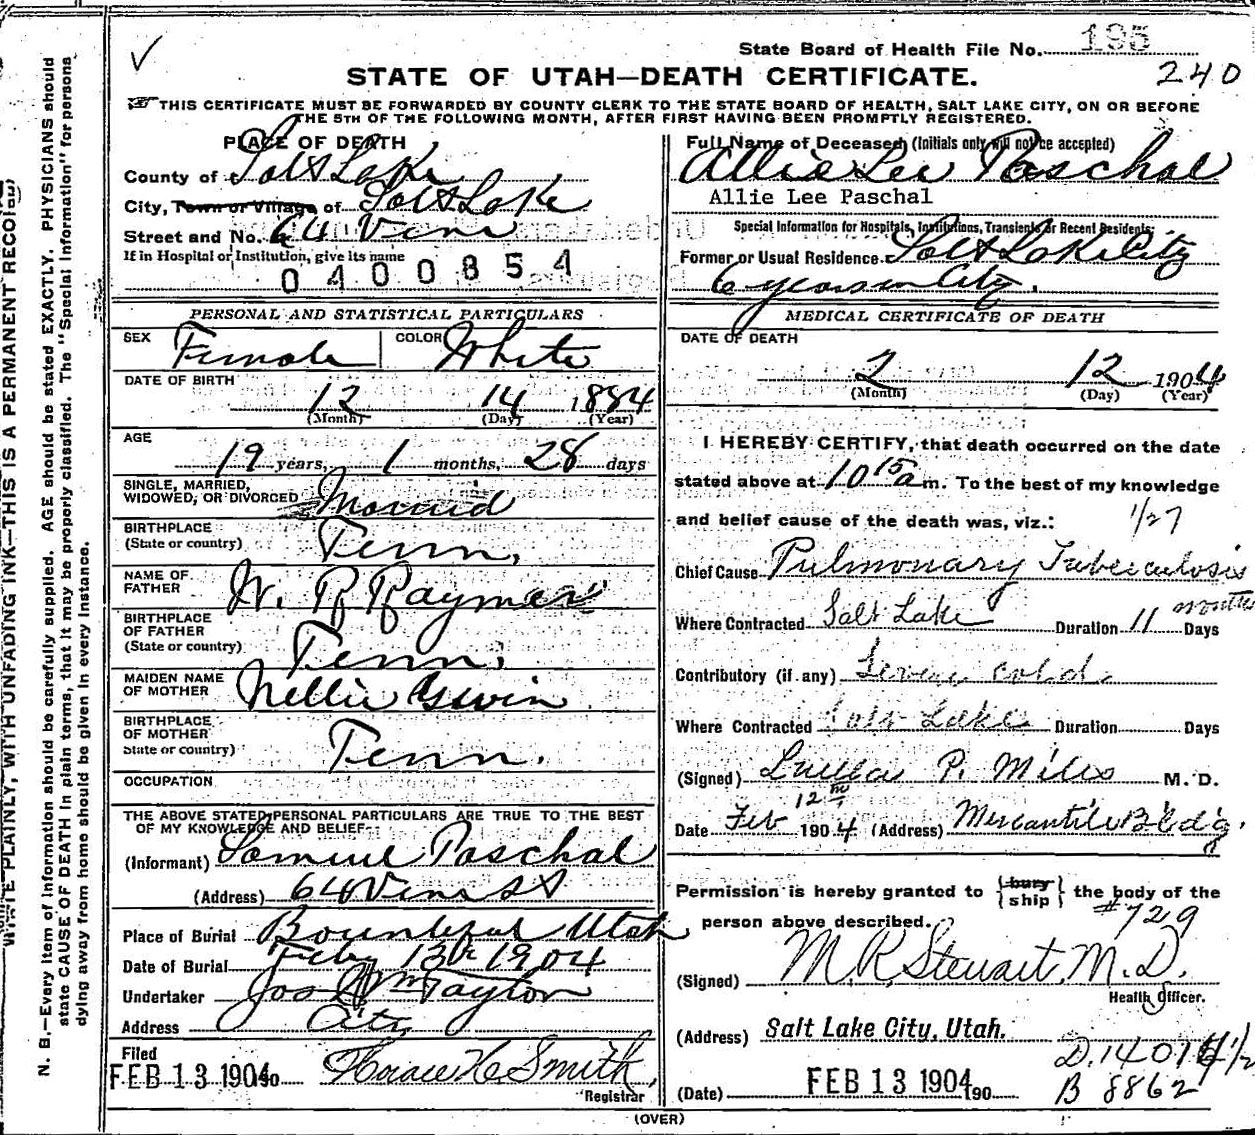 State Board of Health File No. 195
240
STATE OF UTAH—DEATH CERTIFICATE.
THIS CERTIFICATE MUST BE FORWARDED BY COUNTY CLERK TO THE STATE BOARD OF HEALTH, SALT LAKE CITY, ON OR BEFORE
THE 5TH OF THE FOLLOWING MONTH, AFTER FIRST HAVING BEEN PROMPTLY REGISTERED.
PLACE OF DEATH
County of Salt Lake
City, Town or Village of Salt Lake
Street and No. 64 Vine
If in Hospital or Institution, give its name
0400854
Full Name of Deceased (Initials only will not be accepted)
Allie Lee Paschal
Allie Lee Paschal
Special Information for Hospitals, Institutions, Transients or Recent Residents:
Former or Usual Residence Salt Lake City
6 years in City.
PERSONAL AND STATISTICAL PARTICULARS
SEX Female COLOR White
DATE OF BIRTH
12 14 1884
(Month) (Day) (Year)
AGE
19 years, 1 months, 28 days
SINGLE, MARRIED,
WIDOWED, OR DIVORCED Married
BIRTHPLACE
(State or country) Tenn.
NAME OF
FATHER W. R. Raymer
BIRTHPLACE
OF FATHER
(State or country) Tenn.
MAIDEN NAME
OF MOTHER Nellie Gwin
BIRTHPLACE
OF MOTHER
State or country) Tenn.
OCCUPATION
THE ABOVE STATED PERSONAL PARTICULARS ARE TRUE TO THE BEST
OF MY KNOWLEDGE AND BELIEF
(Informant) Samuel Paschal
(Address) 64 Vine St
Place of Burial Bountiful Utah
Date of Burial Feby 13th 1904
Undertaker Jos Wm Taylor
Address City
Filed
FEB 13 1904 190 Horace H. Smith,
Registrar
MEDICAL CERTIFICATE OF DEATH
DATE OF DEATH
2 12 1904
(Month) (Day) (Year)
I HEREBY CERTIFY, that death occurred on the date
stated above at 10 15 a m. To the best of my knowledge
and belief cause of the death was, viz.: 1/27
Chief Cause Pulmonary Tuberculosis
Where Contracted Salt Lake Duration 11 months Days
Contributory (if any) Severe cold.
Where Contracted Salt Lake Duration Days
(Signed) P. Miles M. D.
Date Feb 12th 1904 (Address) Mercantile Bldg.
Permission is hereby granted to {bury ship} the body of the
person above described. #729
(Signed) M. R. Stewart, M.D.
Health Officer.
(Address) Salt Lake City, Utah.
(Date) FEB 13 1904 190
B 8862
(OVER)
N. B.—Every item of information should be carefully supplied. AGE should be stated EXACTLY. PHYSICIANS should
state CAUSE OF DEATH in plain terms, that it may be properly classified. The "Special Information" for persons
dying away from home should be given in every instance.
WRITE PLAINLY, WITH UNFADING INK—THIS IS A PERMANENT RECORD